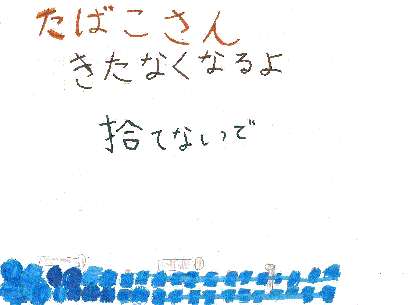 たばこさん
きたなくなるよ
捨てないで